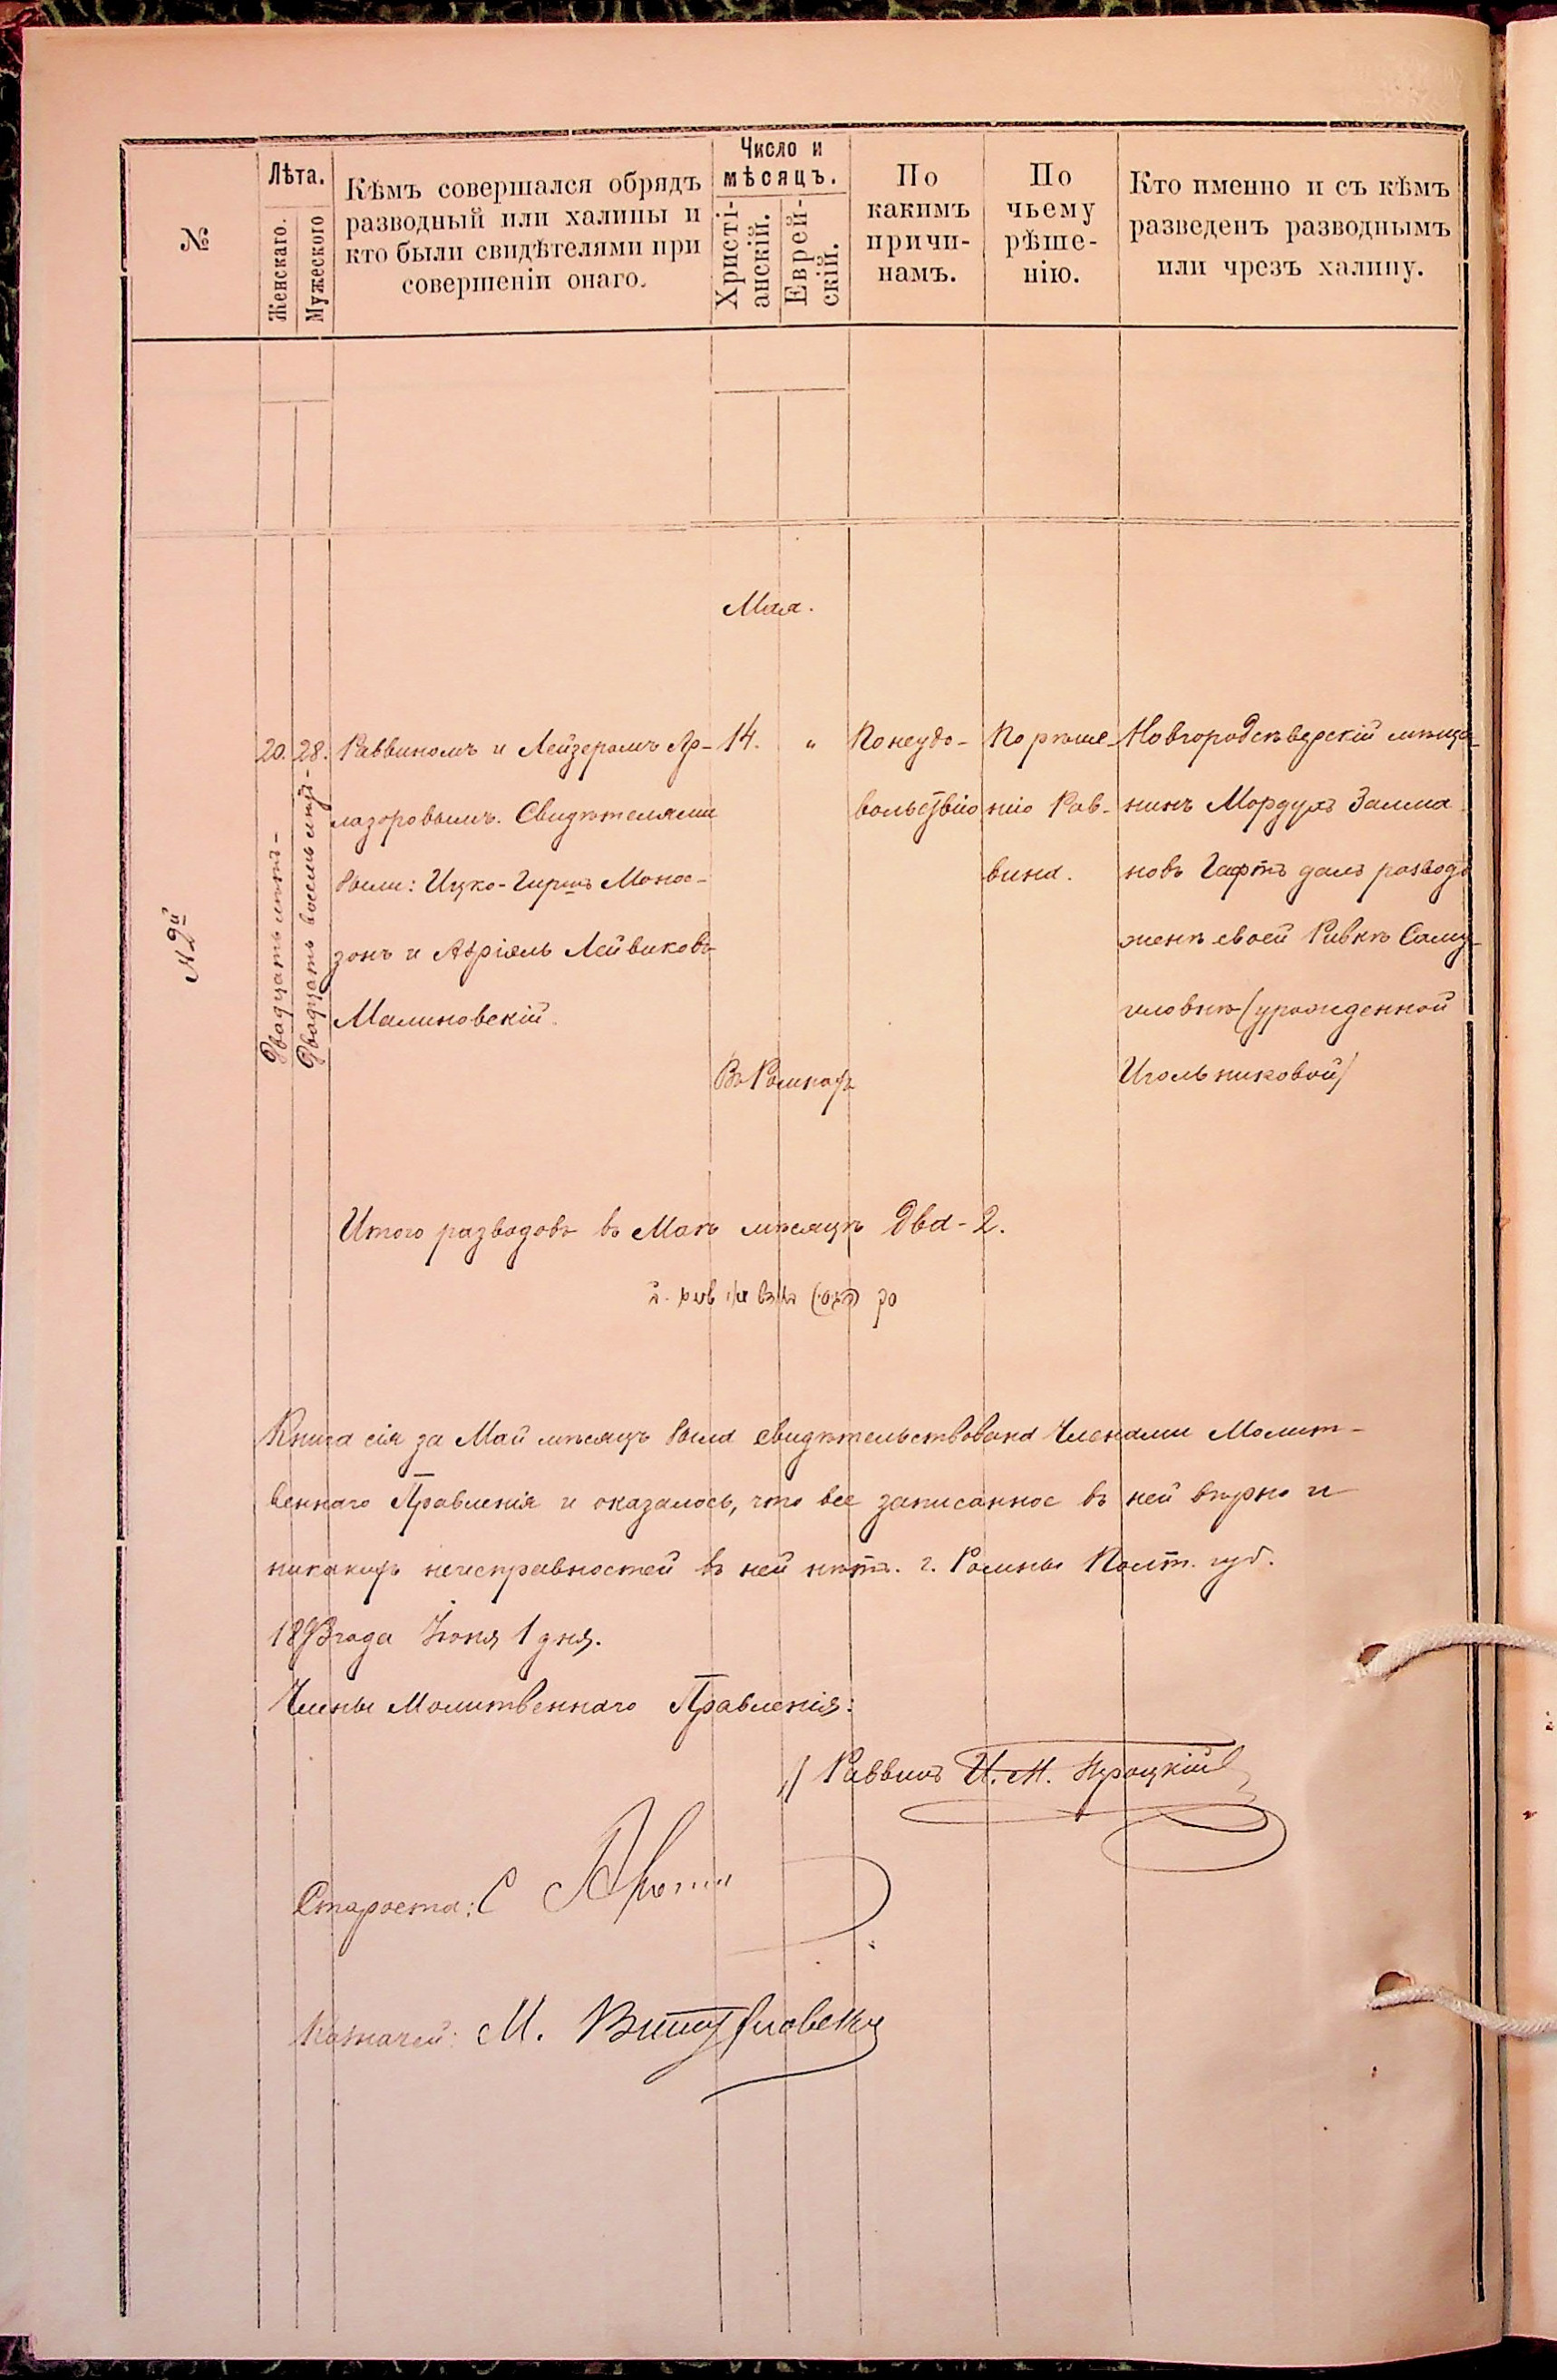 №
Лѣта.
Женскаго.
Мужескаго
Кѣмъ совершался обрядъ
разводный или халицы и
кто были свидѣтелями при
совершеніи онаго.
Число и
мѣсяцъ.
Христі-
анскій.
Еврей-
скій.
По
какимъ
причи-
намъ.
По
чьему
рѣше-
нію.
Кто именно и съ кѣмъ
разведенъ разводнымъ
или чрезъ халицу.
Мая.
№ 2й
20.
Двадцать
28.
Двадцать восемь лѣтъ-
Раввиномъ и Лейзеромъ Яр-
лазоровымъ. Свидѣтелями
были: Ицко-Гиршъ Моно-
зонъ и Авріель Лейвиковъ
Малиновскій.
14.
"
Въ Ромнахъ
По неудо-
вольствію
По рѣше-
нію Рав-
вина.
Новгородсѣверскій мѣща-
нинъ Мордухъ Залма
новъ Гафтъ далъ разводъ
женѣ своей Ривкѣ Саму-
иловнѣ (урожденной
Игольниковой)
Итого разводовъ въ Маѣ мѣсяцѣ Два - 2.
Книга сія за Май мѣсяцъ была свидѣтельствована Членами Молит-
веннаго Правленія и оказалось, что все записанное въ ней вѣрно и
никакихъ неисправностей въ ней нѣтъ. г. Ромны Полт. губ.
1893 года Іюня 1 дня.
Члены Молитвеннаго Правленія:
Раввинъ И. М.
Староста: С
Казначей: М.